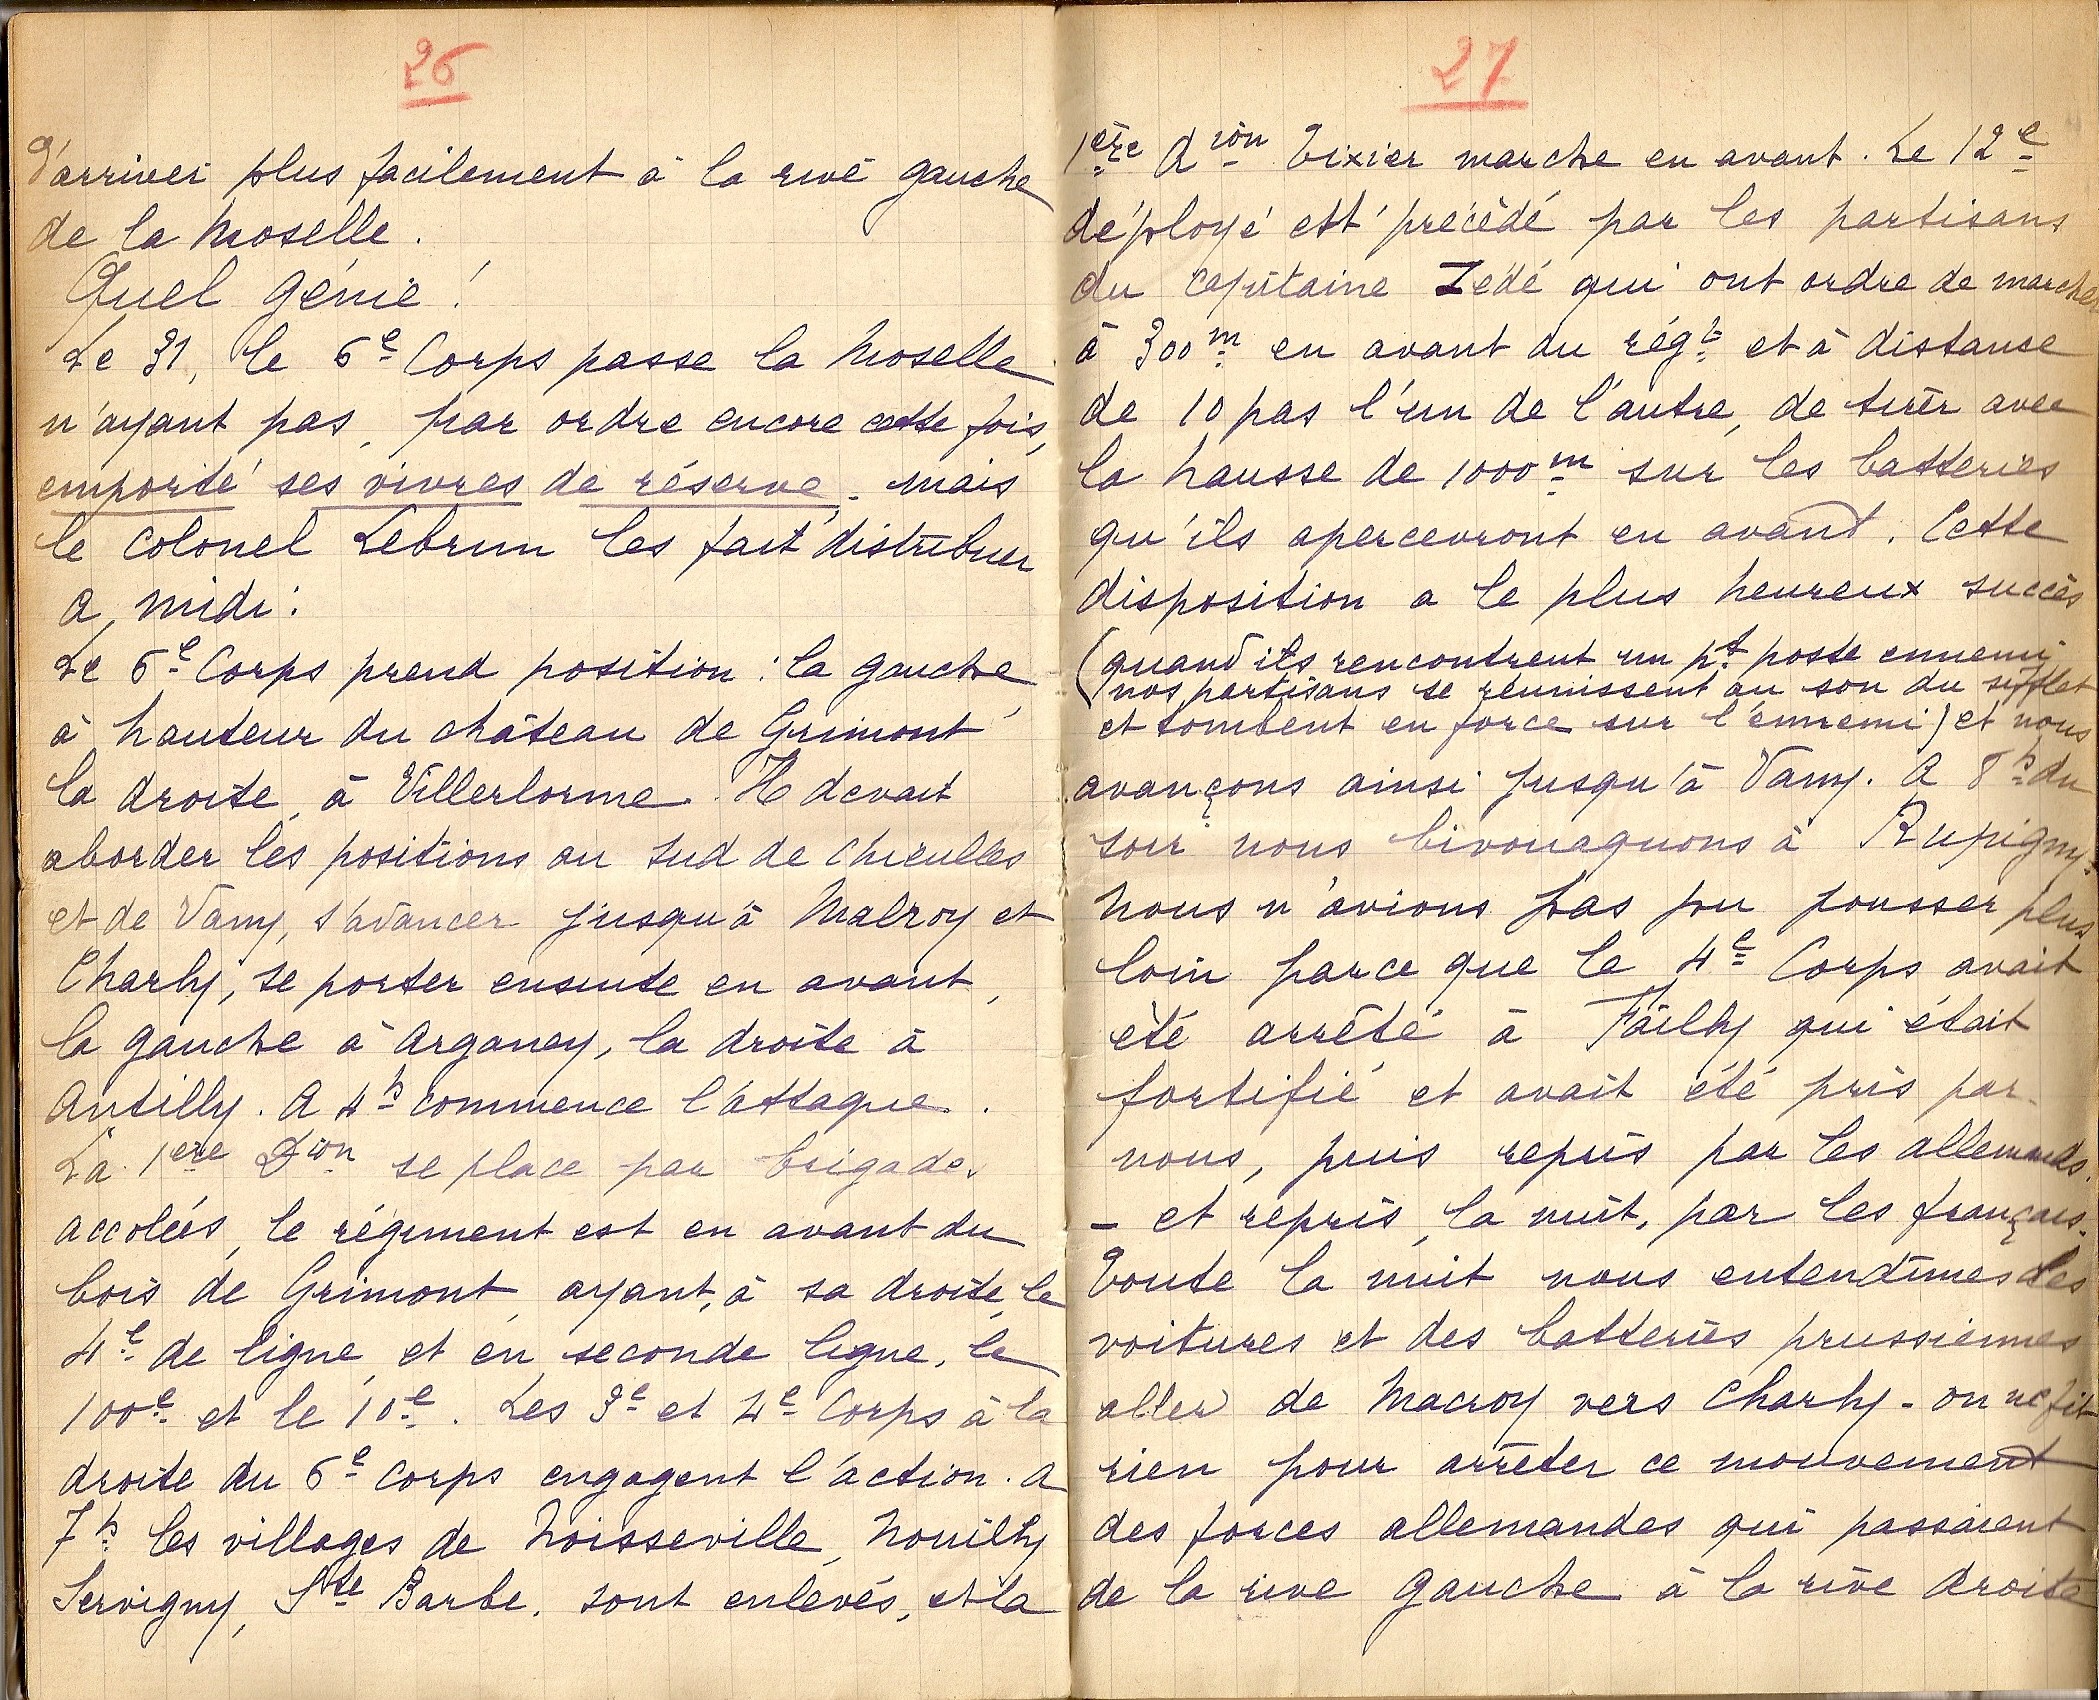 26
d'arriver plus facilement à la rive gauche
de la Moselle.
Quel génie !
Le 31, le 6e Corps passe la Moselle
n'ayant pas, par ordre encore cette fois,
emporté ses vivres de réserve, - mais
le colonel Lebrun les fait distribuer
a midi.
Le 6e Corps prend position : la gauche
à hauteur du château de Grimont
la droite, à Villerlorme. Il devait
aborder les positions au sud de Chieulles
et de Vany, s'avancer jusqu'à Malroy et
Charly, se porter ensuite en avant,
la gauche à Argancy, la droite à
Antilly. A 4h commence l'attaque.
La 1ere Dion se place par brigades
accolées, le régiment est en avant du
bois de Grimont, ayant, à sa droite, le
4e de ligne, et en seconde ligne, le
100e et le 10e. Les 3e et 4e Corps à la
droite du 6e corps engagent l'action. A
7h les villages de Noisseville, Nouilly
Servigny, Ste Barbe, sont enlevés, et la
27
1ère Dion Tixier marche en avant. Le 12e
déployé est précédé par les partisans
du capitaine Zédé qui ont ordre de marcher
à 300m en avant du régt et à distance
de 10 pas l'un de l'autre, de tirer avec
la hausse de 1000m sur les batteries
qu'ils apercevront en avant. Cette
disposition a le plus heureux succès
(quand ils rencontrent un pt poste ennemi
nos partisans se réunissent au son du sifflet
et tombent en force sur l'ennemi) et nous
avançons ainsi jusqu'à Vany. A 8h du
soir nous bivouaquons à Rupigny.
Nous n'avions pas pu pousser plus
loin parce que le 4e Corps avait
été arrêté à Failly qui était
fortifié et avait été pris par
nous, puis repris par les allemands.
- et repris, la nuit, par les français.
Toute la nuit nous entendîmes des
voitures et des batteries prussiennes
aller de Macroy vers Charly - on ne fit
rien pour arrêter ce mouvement
des forces allemandes qui passaient
de la rive gauche à la rive droite